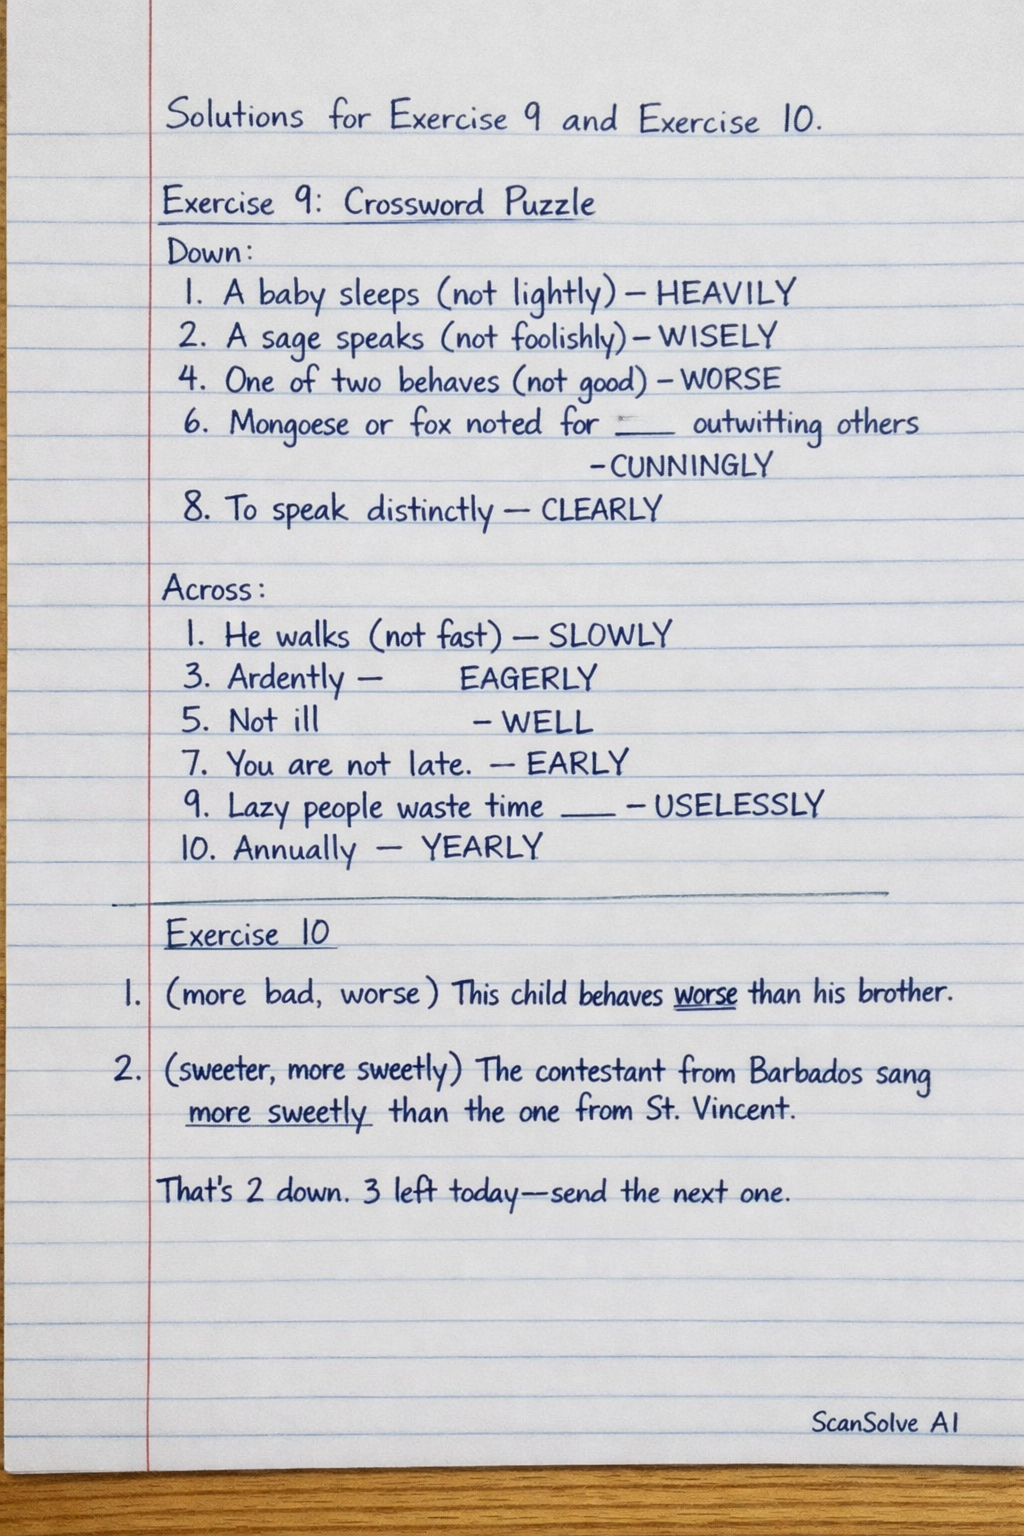 Solutions for Exercise 9 and Exercise 10.
Exercise 9: Crossword Puzzle
Down:
1. A baby sleeps (not lightly) – HEAVILY
2. A sage speaks (not foolishly) – WISELY
4. One of two behaves (not good) – WORSE
6. Mongoese or fox noted for ___ outwitting others
– CUNNINGLY
8. To speak distinctly – CLEARLY
Across:
1. He walks (not fast) – SLOWLY
3. Ardently – EAGERLY
5. Not ill – WELL
7. You are not late. – EARLY
9. Lazy people waste time ___ – USELESSLY
10. Annually – YEARLY
Exercise 10
1. (more bad, worse) This child behaves worse than his brother.
2. (sweeter, more sweetly) The contestant from Barbados sang
more sweetly than the one from St. Vincent.
That's 2 down. 3 left today—send the next one.
ScanSolve AI